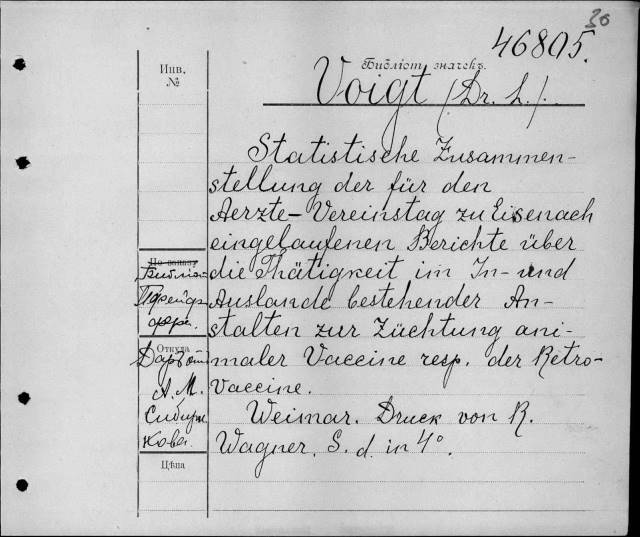 30
46805.
Библіот. значекъ.
Voigt (Dr. L.).
Инв.
№
Statistische Zusammen-
stellung der für den
Aerzte-Vereinstag zu Eisenach
eingelaufenen Berichte über
die Thätigkeit im In- und
Auslande bestehender An-
stalten zur Züchtung ani-
maler Vaccine resp. der Retro-
Vaccine.
Weimar. Druck von R.
Wagner. S. d. in 4°.
Откуда
Даръ отъ
А. М.
Сибиря-
кова.
Цѣна